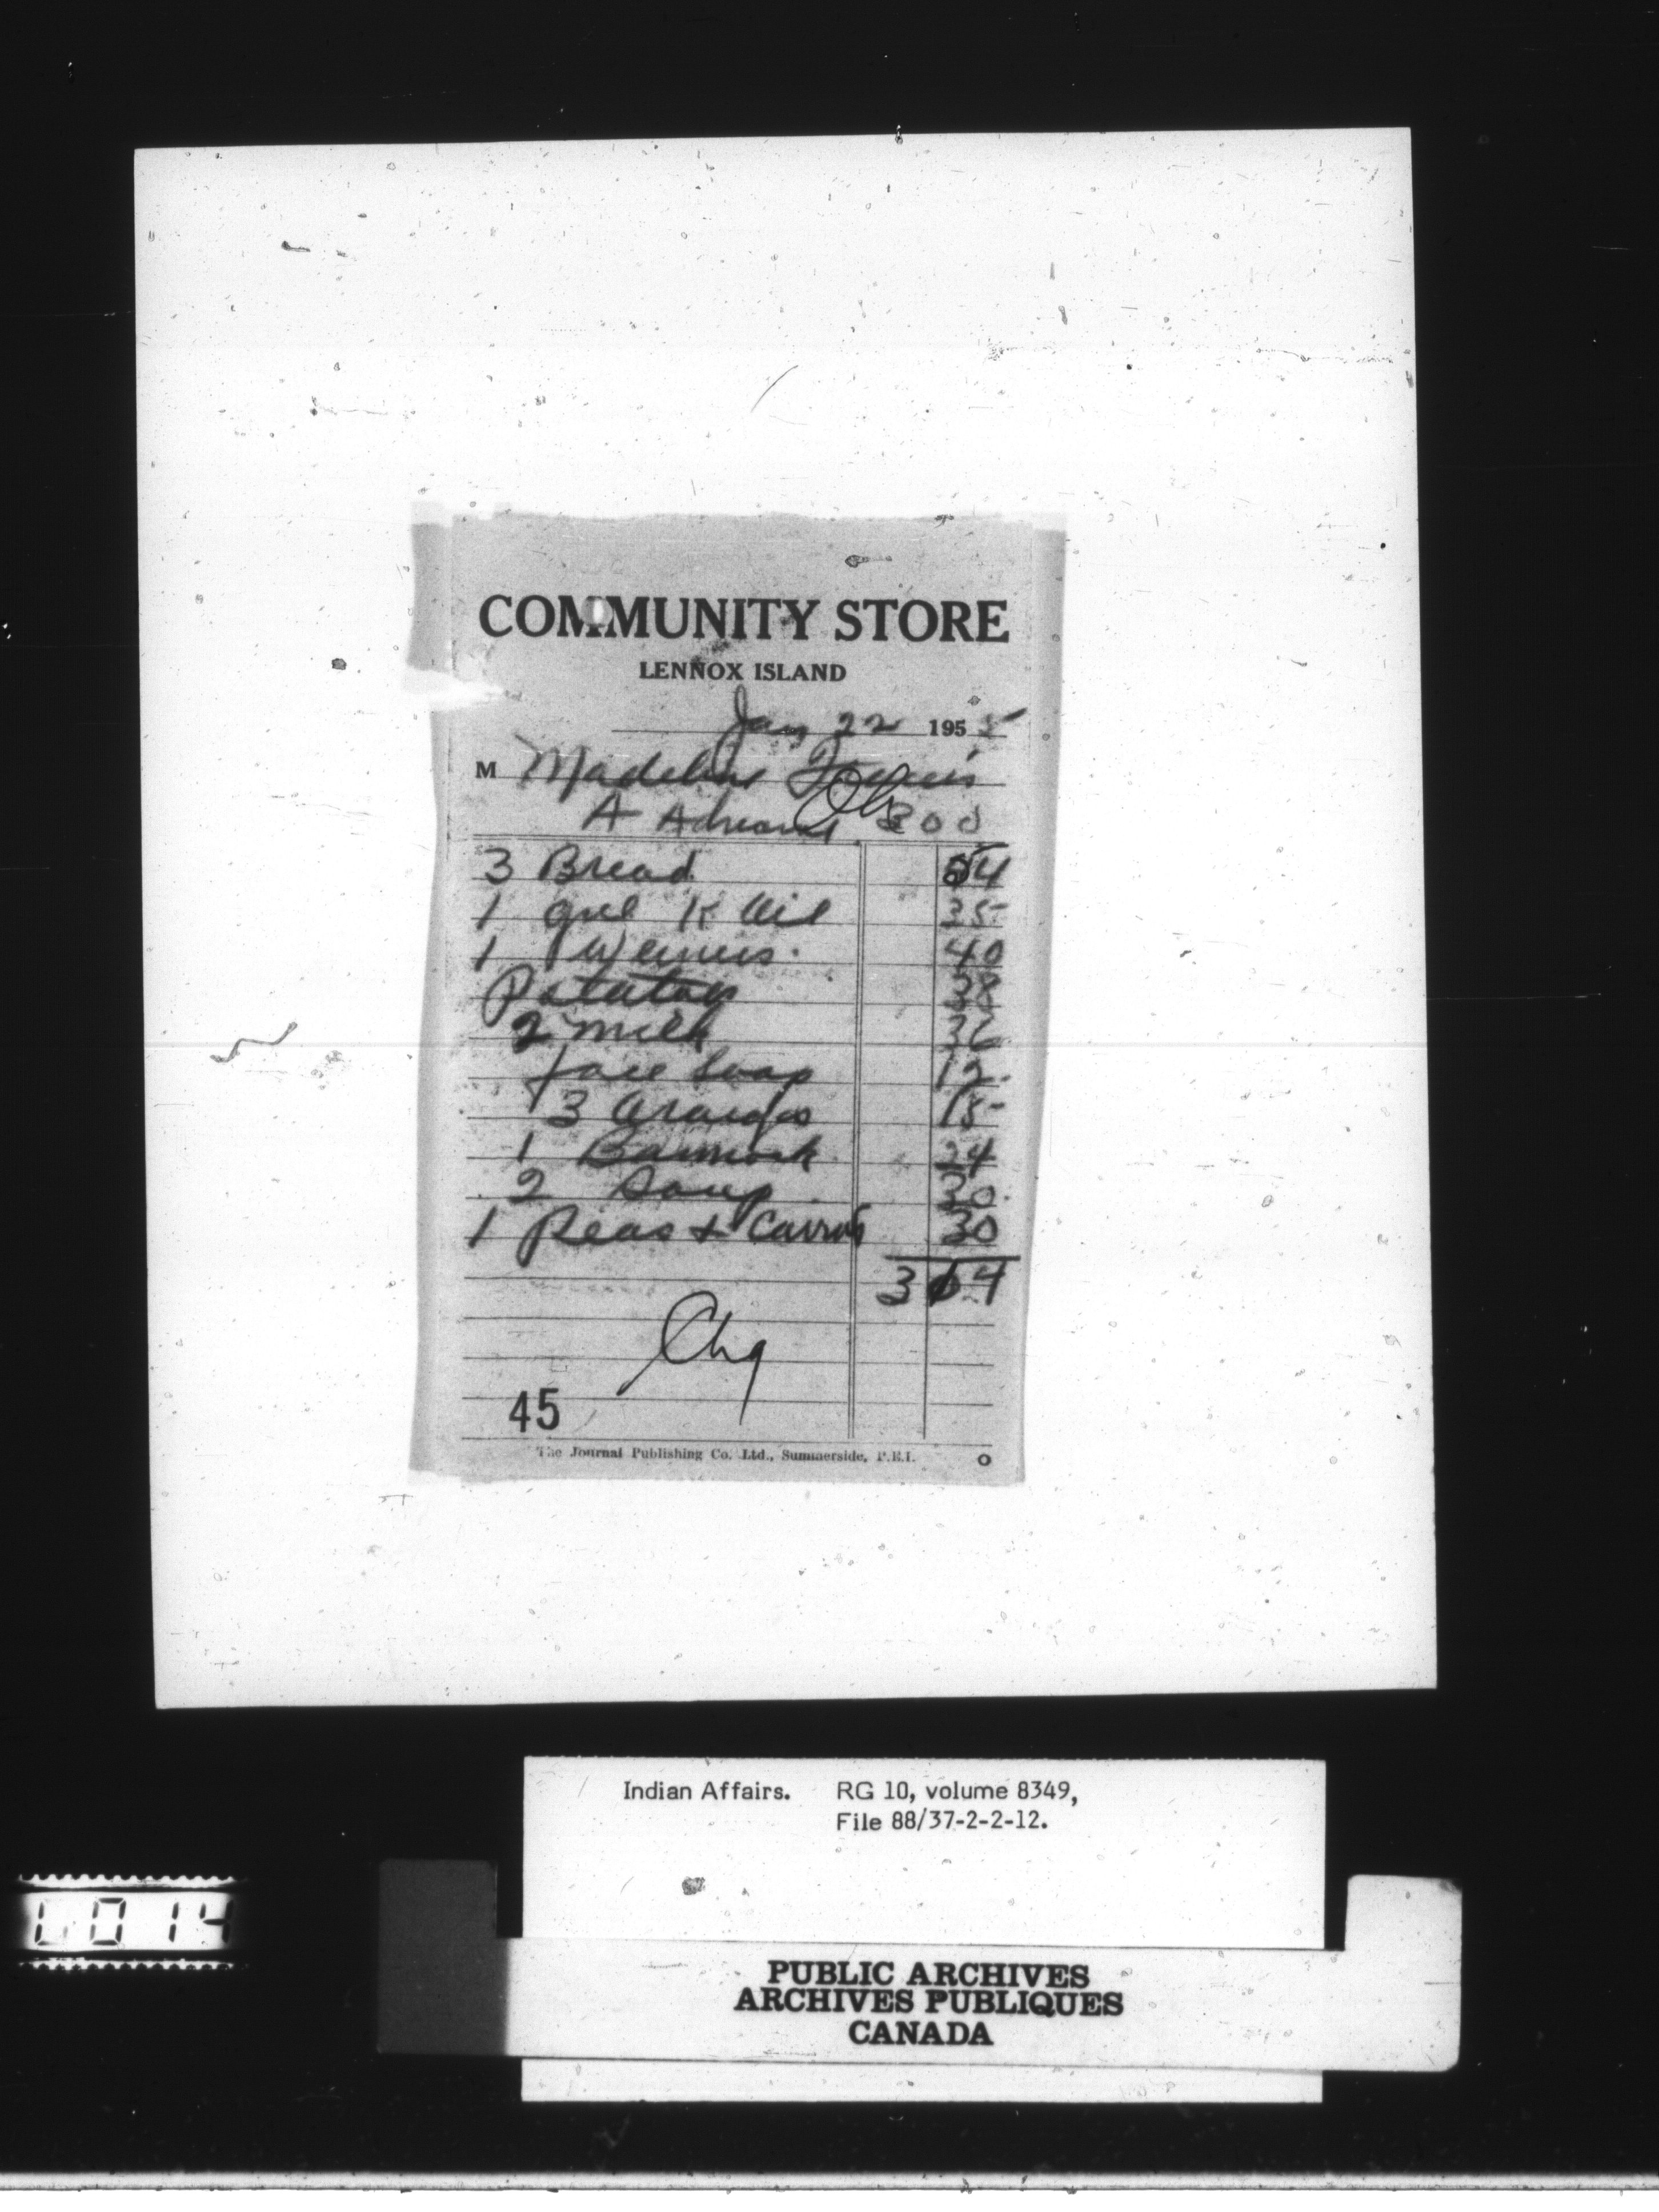 COMMUNITY STORE
LENNOX ISLAND
Jan 22 1955
M Madeline
A 300
3 Bread 54
1 gal K Oil 35
1 Weiners 40
Potatoes 38
2 Milk 36
face Soap 12
3 Oranges 15
1 Bannock 24
2 Soup 30
1 Peas + Carrots 30
3 14
Chg
45
The Journal Publishing Co. Ltd., Summerside, P.E.I.
O
Indian Affairs. RG 10, volume 8349,
File 88/37-2-2-12.
014
PUBLIC ARCHIVES
ARCHIVES PUBLIQUES
CANADA